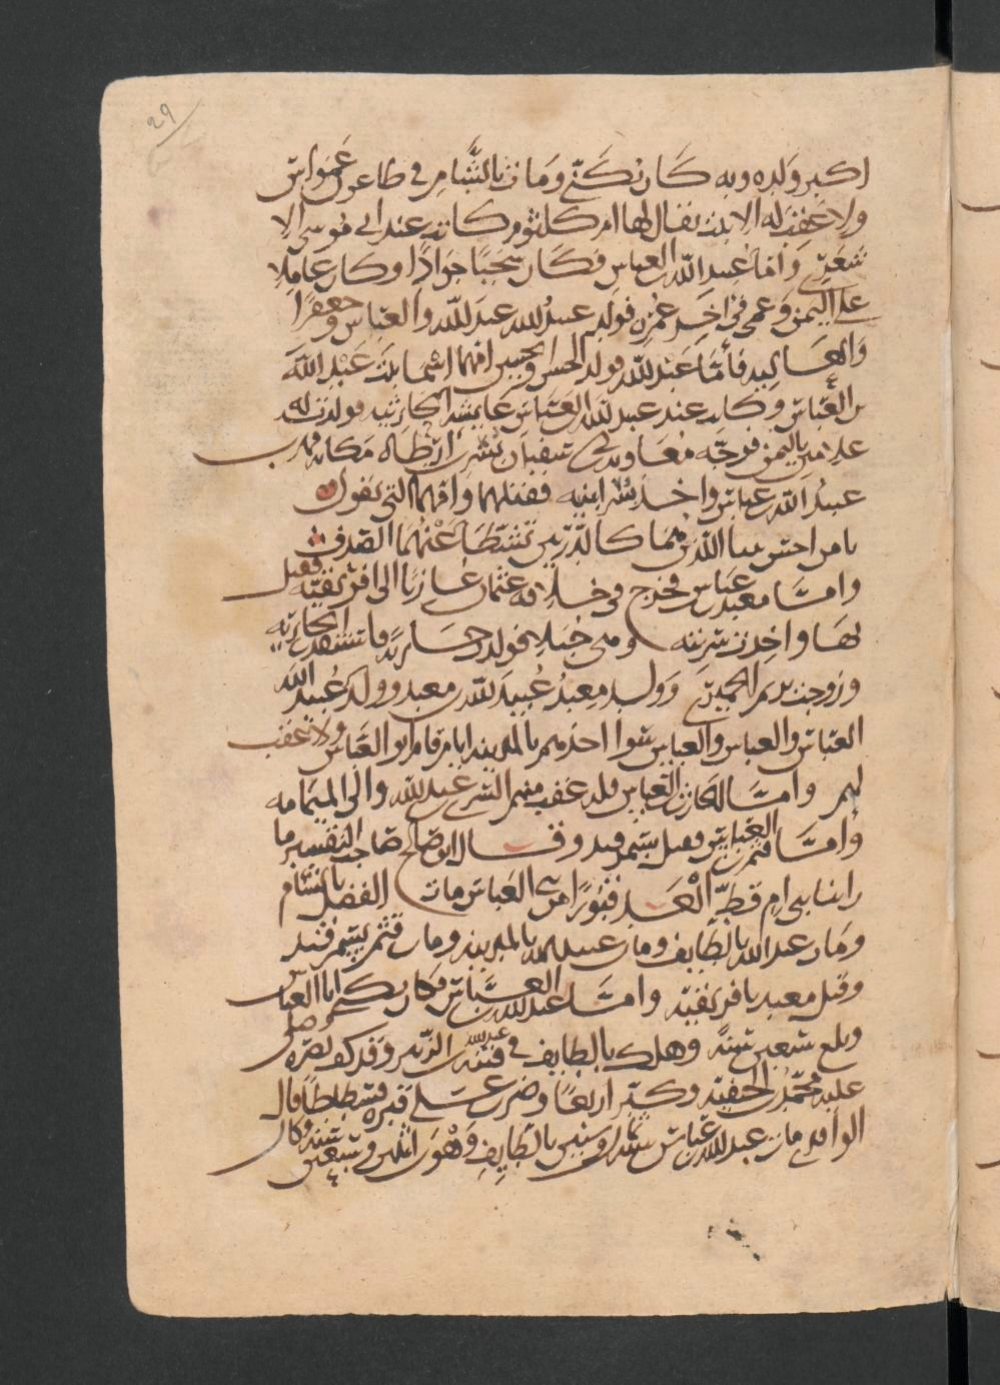 ٢٩
اكبر ولده وبه كان يكنى ومات بالشام في طاعون عمواس
ولا عقب له الا بنت يقال لها ام كلثوم وكانت عند ابي موسى الا
شعري واما عبيد الله بن العباس فكان سخيا جوادا وكان عاملا
على اليمن وعمى في اخر عمره فولد عبيد الله عبد الله والعباس وجعفرا
والعاليه فأما عبد الله فولد الحسن والحسين امهما اسما بنت عبد الله
بن العباس وكانت عند عبيد الله بن العباس عايشة الحارثيه فولدت له
غلامين باليمن فوجه معاويه بن ابي سفيان بسر بن ارطاه مكانه فهرب
عبيد الله بن عباس واخذ بسر ابنيه فقتلهما وامهما التي تقول
يا من احس بنيا اللذين هما كالدرتين تشظا عنهما الصدف
واما معبد بن عباس فخرج في خلافه عثمان غازيا الى افريقيه فقتل
بها واخذت سريته
وزوجت بريم الحميري وولد معبد عبيد الله بن معبد وولد عبيد الله
العباس والعباس والعباس سوا احدهم بالمدينه ايام قام ابو العباس ولا عقب
لهم واما الحارث بن العباس فله عقب منهم السري بن عبد الله والي اليمامه
واما قثم بن العباس فقتل بسمرقند وقال ابو صالح صاحب التفسير ما
راينا بني ام قط ابعد قبورا من بني العباس مات الفضل بالشام
ومات عبد الله بالطايف ومات عبيد الله بالمدينه ومات قثم بسمرقند
وقتل معبد بافريقيه واما عبد الله بن العباس فكان يكنى ابا العباس
وبلغ سبعين سنة وهلك بالطايف في فتنه عبد الله بن الزبير وقد كف بصره وصلى
عليه محمد بن الحنفيه وكبر اربعا وضرب على قبره فسطاطا قال
الواقدي مات عبد الله بن عباس سنه ثمان وستين بالطايف وهو ابن اثنين وسبعين سنه وكان